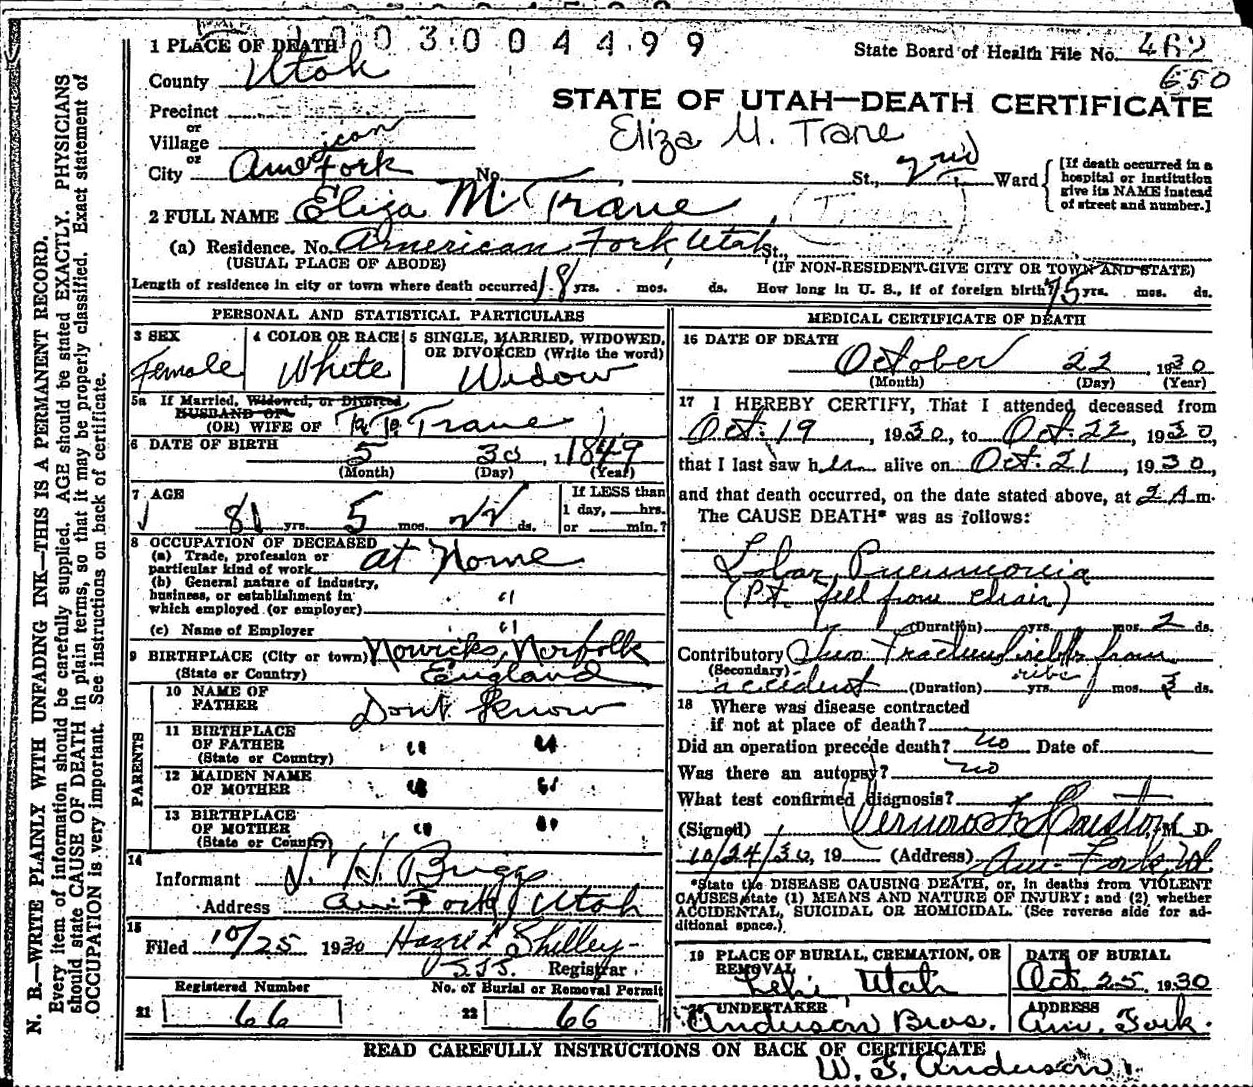 1003004499
1 PLACE OF DEATH
State Board of Health File No. 462
650
County Utah
STATE OF UTAH—DEATH CERTIFICATE
Precinct
or
Village
Eliza M. Trane
or
City American Fork No. St., 2nd Ward
[If death occurred in a
hospital or institution
give its NAME instead
of street and number.]
2 FULL NAME Eliza M. Trane
(a) Residence. No. American Fork, Utah St.,
(USUAL PLACE OF ABODE) (IF NON-RESIDENT GIVE CITY OR TOWN AND STATE)
Length of residence in city or town where death occurred 18 yrs. mos. ds. How long in U. S., if of foreign birth? 75 yrs. mos. ds.
PERSONAL AND STATISTICAL PARTICULARS
3 SEX
Female
4 COLOR OR RACE
White
5 SINGLE, MARRIED, WIDOWED,
OR DIVORCED (Write the word)
Widow
5a If Married, Widowed, or Divorced
HUSBAND OF
(OR) WIFE OF Trane
6 DATE OF BIRTH 5 30 1849
(Month) (Day) (Year)
7 AGE
81 yrs. 5 mos. 22 ds.
If LESS than
1 day, hrs.
or min.?
8 OCCUPATION OF DECEASED
(a) Trade, profession or
particular kind of work At Home
(b) General nature of industry,
business, or establishment in
which employed (or employer) "
(c) Name of Employer "
9 BIRTHPLACE (City or town) Nowicks, Norfolk
(State or Country) England
PARENTS
10 NAME OF
FATHER Dont Know
11 BIRTHPLACE
OF FATHER " "
(State or Country)
12 MAIDEN NAME
OF MOTHER " "
13 BIRTHPLACE
OF MOTHER " "
(State or Country)
14
Informant J. H. Buggs
Address Am. Fork, Utah
15
Filed 10/25 1930 Hazel L. Shelley
Registrar
Registered Number No. of Burial or Removal Permit
21 66 22 66
MEDICAL CERTIFICATE OF DEATH
16 DATE OF DEATH
October 22, 1930
(Month) (Day) (Year)
17 I HEREBY CERTIFY, That I attended deceased from
Oct. 19, 1930, to Oct. 22, 1930
that I last saw her alive on Oct. 21, 1930,
and that death occurred, on the date stated above, at 2 A m.
The CAUSE DEATH* was as follows:
Lobar Pneumonia
(Pt. fell from chair)
(Duration) yrs. mos. 2 ds.
Contributory Two Fractured ribs from
(Secondary) ribs
accident (Duration) yrs. mos. 3 ds.
18 Where was disease contracted
if not at place of death?
Did an operation precede death? no Date of
Was there an autopsy? no
What test confirmed diagnosis?
(Signed) M. D.
10/24/30, 19 (Address) Am. Fork, Ut.
*State the DISEASE CAUSING DEATH, or, in deaths from VIOLENT
CAUSES, state (1) MEANS AND NATURE OF INJURY; and (2) whether
ACCIDENTAL, SUICIDAL OR HOMICIDAL. (See reverse side for ad-
ditional space.)
19 PLACE OF BURIAL, CREMATION, OR
REMOVAL
Lehi, Utah
DATE OF BURIAL
Oct 25, 1930
20 UNDERTAKER
Anderson Bros.
ADDRESS
Am. Fork.
READ CAREFULLY INSTRUCTIONS ON BACK OF CERTIFICATE
W. F. Anderson
N. B.—WRITE PLAINLY WITH UNFADING INK—THIS IS A PERMANENT RECORD.
Every item of information should be carefully supplied. AGE should be stated EXACTLY. PHYSICIANS
should state CAUSE OF DEATH in plain terms, so that it may be properly classified. Exact statement of
OCCUPATION is very important. See instructions on back of certificate.